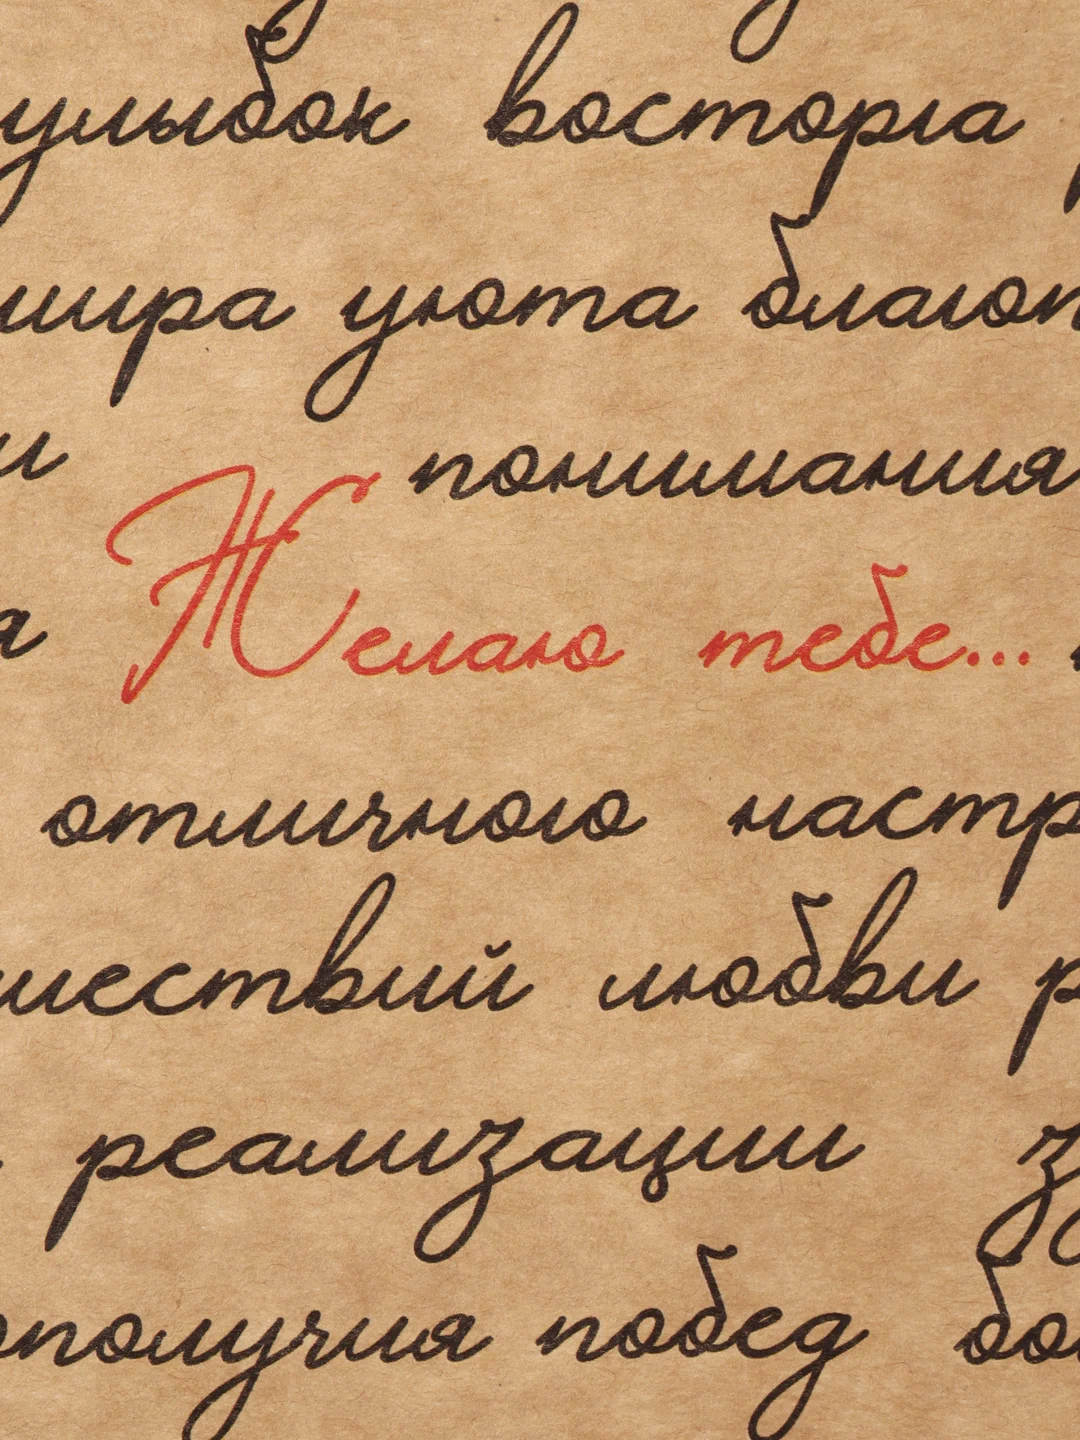 улыбок восторга
мира уюта благоп
и понимания
я Желаю тебе...
отличного настр
шествий любви р
реализации з
ополучия побед бо